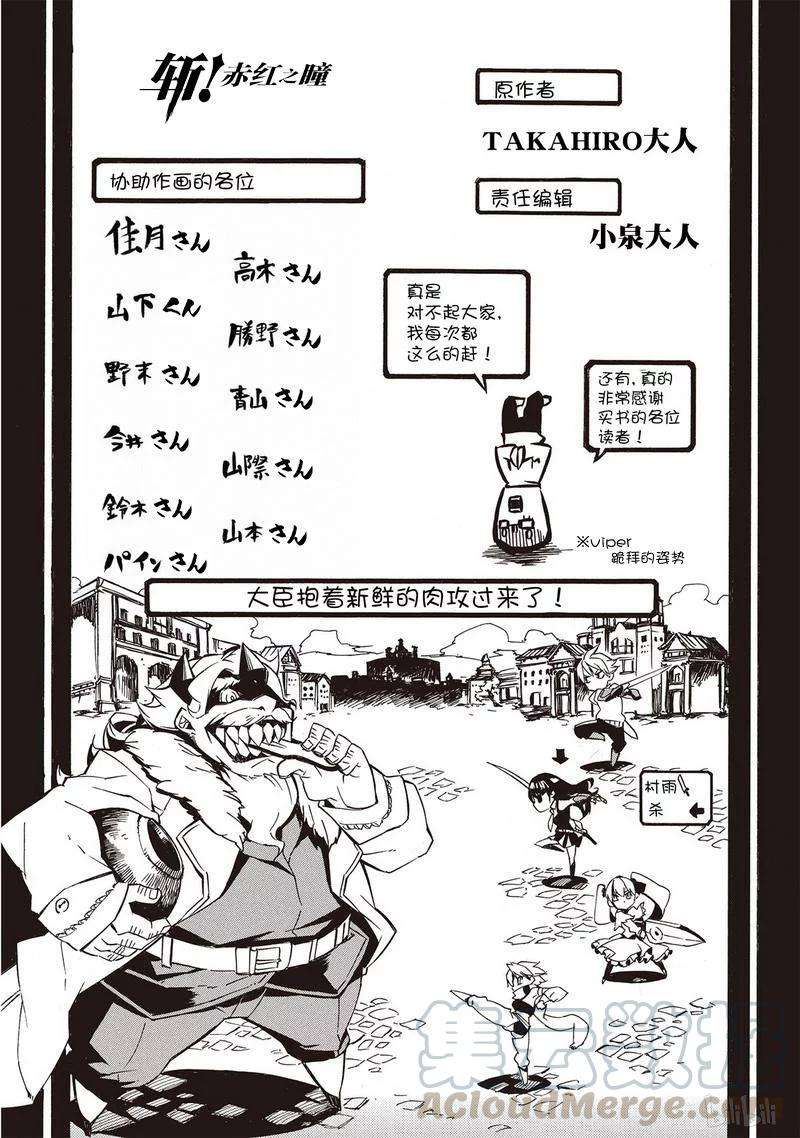 斩!赤红之瞳
原作者
TAKAHIRO大人
责任编辑
小泉大人
协助作画的各位
佳月さん
高木さん
山下くん
勝野さん
野末さん
青山さん
今井さん
山際さん
鈴木さん
山本さん
パインさん
真是
对不起大家,
我每次都
这么的赶!
还有,真的
非常感谢
买书的各位
读者!
※viper
跪拜的姿势
大臣抱着新鲜的肉攻过来了!
村雨
杀
集云数据
AcloudMerge.com
bilibili